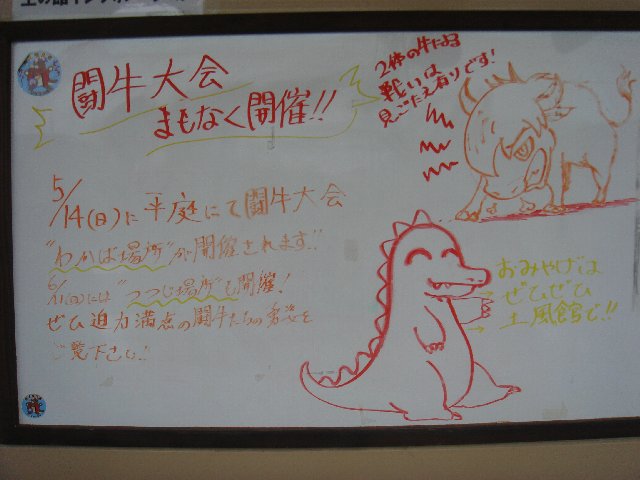 闘牛大会
まもなく開催!!
2体の牛による
戦いは
見ごたえ有りです!
5/14(日)に平庭にて闘牛大会
"わかば場所"が開催されます!!
6/11(日)には"つつじ場所"も開催!
ぜひ迫力満点の闘牛たちの勇姿を
ご覧下さい!
おみやげは
ぜひぜひ
土風館で!!